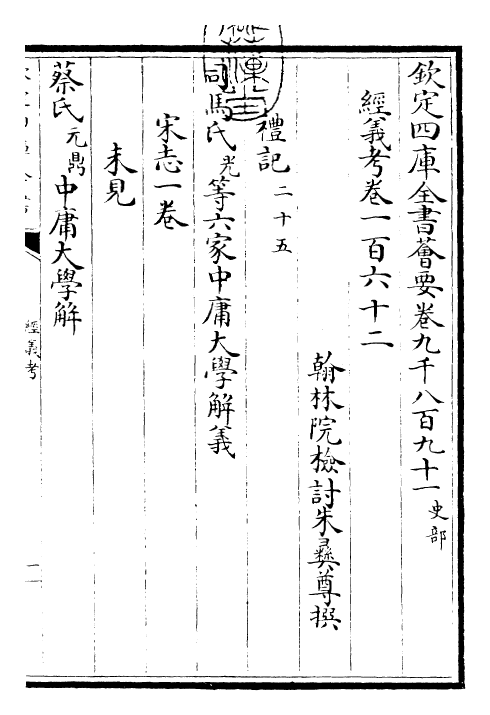 欽定四庫全書薈要卷九千八百九十一史部
經義考卷一百六十二
翰林院檢討朱彝尊撰
禮記二十五
司馬氏光等六家中庸大學解義
宋志一卷
未見
蔡氏元鼎中庸大學解
經義考